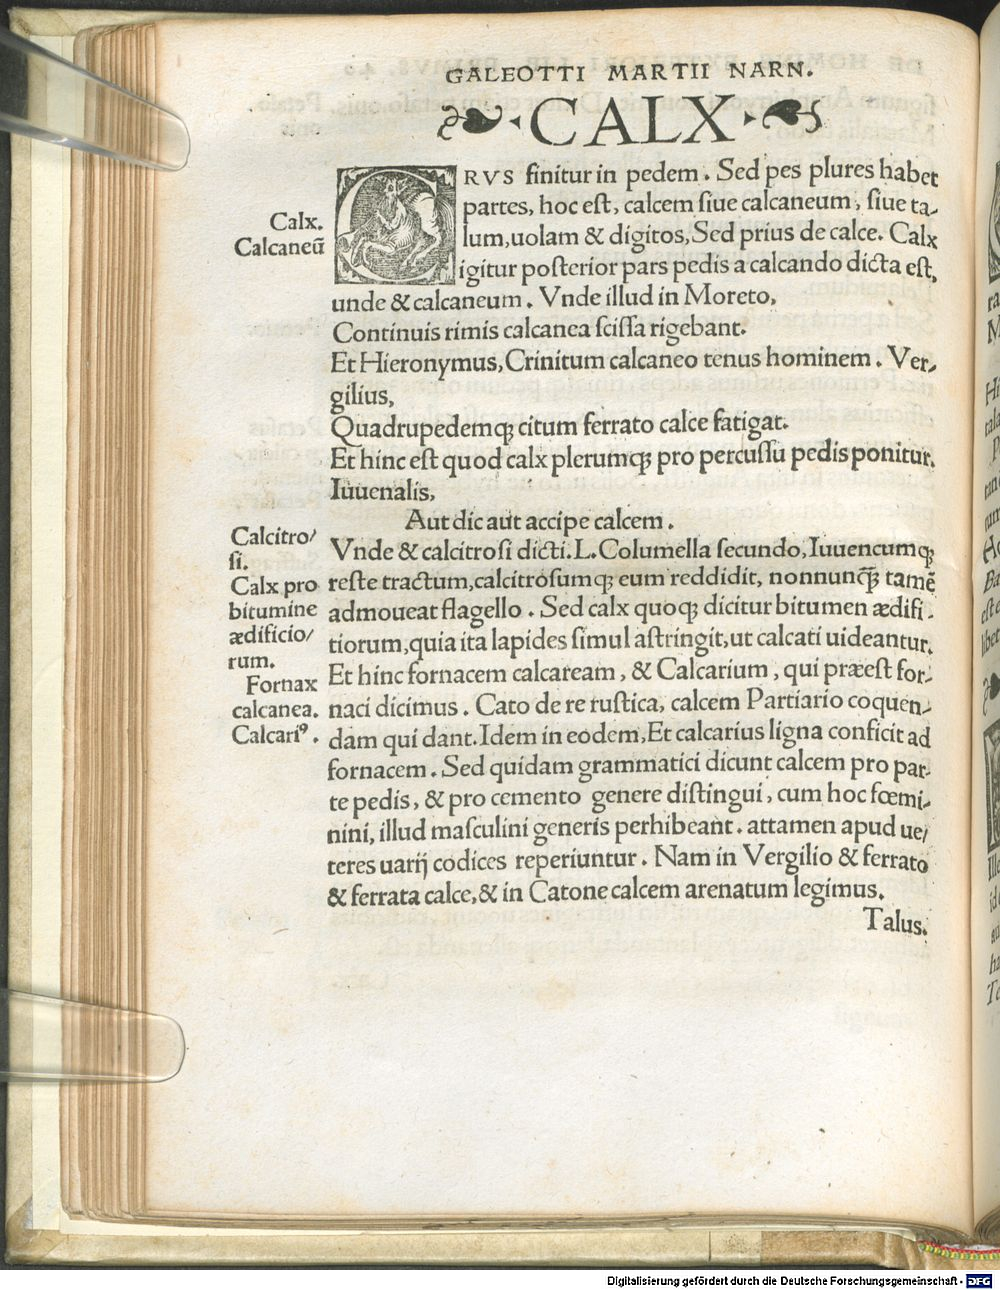 GALEOTTI MARTII NARN.
CALX
CRVS finitur in pedem. Sed pes plures habet
partes, hoc est, calcem siue calcaneum, siue ta-
lum, uolam & digitos, Sed prius de calce. Calx
igitur posterior pars pedis a calcando dicta est,
unde & calcaneum. Vnde illud in Moreto,
Continuis rimis calcanea scissa rigebant.
Et Hieronymus, Crinitum calcaneo tenus hominem. Ver-
gilius,
Quadrupedemq; citum ferrato calce fatigat.
Et hinc est quod calx plerumq; pro percussu pedis ponitur.
Iuuenalis,
Aut dic aut accipe calcem.
Vnde & calcitrosi dicti. L. Columella secundo, Iuuencumq;
reste tractum, calcitrosumq; eum reddidit, nonnunq̃ȝ tamẽ
admoueat flagello. Sed calx quoq; dicitur bitumen ædifi-
tiorum, quia ita lapides simul astringit, ut calcati uideantur.
Et hinc fornacem calcaream, & Calcarium, qui præest for-
naci dicimus. Cato de re rustica, calcem Partiario coquen-
dam qui dant. Idem in eodem, Et calcarius ligna conficit ad
fornacem. Sed quidam grammatici dicunt calcem pro par-
te pedis, & pro cemento genere distingui, cum hoc fœmi-
nini, illud masculini generis perhibeant. attamen apud ue/
teres uarij codices reperiuntur. Nam in Vergilio & ferrato
& ferrata calce, & in Catone calcem arenatum legimus.
Talus.
Calx.
Calcaneũ
Calcitro/
si.
Calx pro
bitumine
ædificio/
rum.
Fornax
calcanea.
Calcariꝰ.
Digitalisierung gefördert durch die Deutsche Forschungsgemeinschaft - DFG